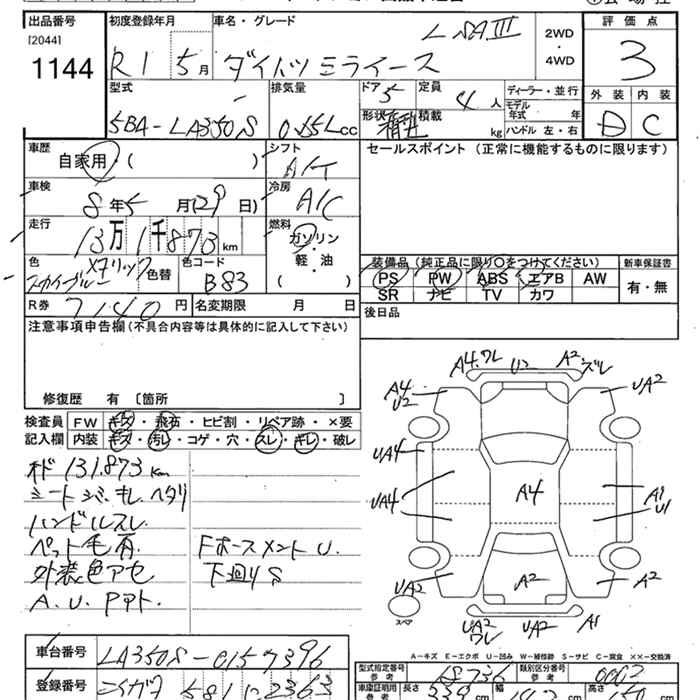 出品番号 初度登録年月 車名・グレード 評価点
[2044]
1144
R1 5月 ダイハツ ミライース L SAⅢ
2WD
・
4WD
3
型式 排気量 ドア 定員 ディーラー・並行 外装 内装
5BA-LA350S 0.65L CC 5 4人
モデル年式 年
形状 積載 kg ハンドル 左・右
D C
車歴 自家用・( ) シフト A/T
セールスポイント (正常に機能するものに限ります)
車検 8年5月(29日) 冷房 A/C
走行 13万1千873km 燃料 ガソリン
軽・油
( )
色 スカイブルーメタリック 色替 色コード B83
装備品 (純正品に限り○をつけてください) 新車保証書
PS PW ABS エアB AW 有・無
SR ナビ TV カワ
R券 7140円 名変期限 月 日
後日品
注意事項申告欄(不具合内容等は具体的に記入して下さい)
修復歴 有 〔箇所 〕
検査員 FW キズ・飛石・ヒビ割・リペア跡・×要
記入欄 内装 キズ・汚レ・コゲ・穴・スレ・キレ・破レ
131.873km
シート シバ キレ ヘタリ
ハンドルスレ
ペット毛有 Fホースメント U.
外装色アセ 下回りS
A.U.Pアト.
A4.ワレ U2 A2 ズレ
A4 U2 UA2
UA4
UA4 A4 A1 U1
UA2 A2 A2
スペア
UA2 ワレ UA2 A1
A-キズ E-エクボ U-凹み W-補修跡 S-サビ C-腐食 ××-交換済
車台番号 LA350S-0157396
型式指定番号 参考 18736 類別区分番号 参考
登録番号 581 2363
車庫証明用 参考 長さ 339 cm 幅 高さ